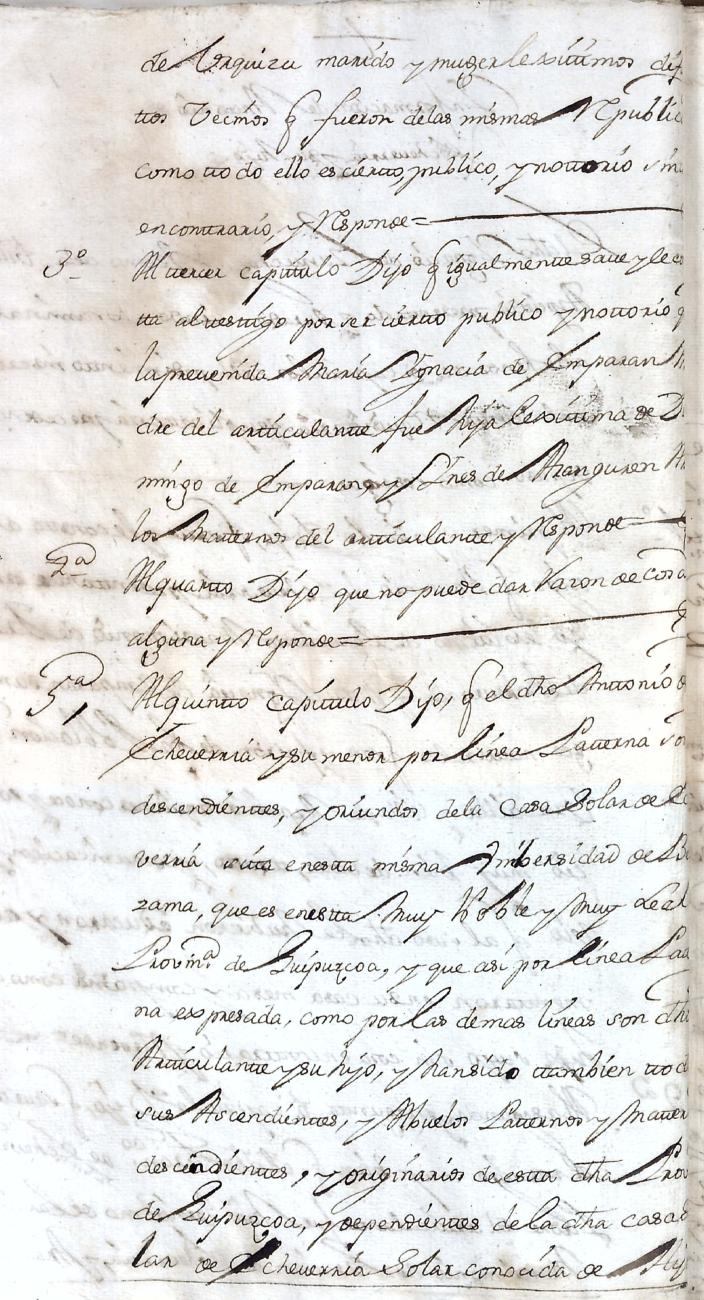 de Urquizu marido y muger lexitimos dif
ttos Vecinos q fueron de las mismas Republic
como ttodo ello es ciertto, publico, y nottorio sin
enconttrario, y Responde=
3º Al tercer capitulo Dijo q igualmentte save y le con
tta al testtigo por ser ciertto publico y nottorio q
la prevenida Maria Ygnacia de Emparan M
dre del artticulantte fue hija lexittima de Do
mingo de Emparan, y Ynes de Aranguren Ab
los Matternos del artticulantte y Responde=
4ª Al quartto Dijo que no puede dar Razon de cosa
alguna y Responde=
5ª, Al quintto capitulo Dijo, q el dho Anttonio d
Echeverria y su menor por linea Patterna son
descendienttes, y oriundos de la Casa Solar de Ec
verria sitta en estta misma Unibersidad de
zama, que es en estta Muy Noble y Muy Leal
Provinª de Guipuzcoa, y que asi por linea Pa
na expresada, como por las demas lineas son dho
Artticulantte y su hijo, y han sido ttambien ttod
sus Ascendienttes, y Abuelos Patternos y Matter
descendienttes, y originarios de estta dha Prov
de Guipuzcoa, y dependienttes de la dha casa
lar de Echeverria Solar conocida de Hij